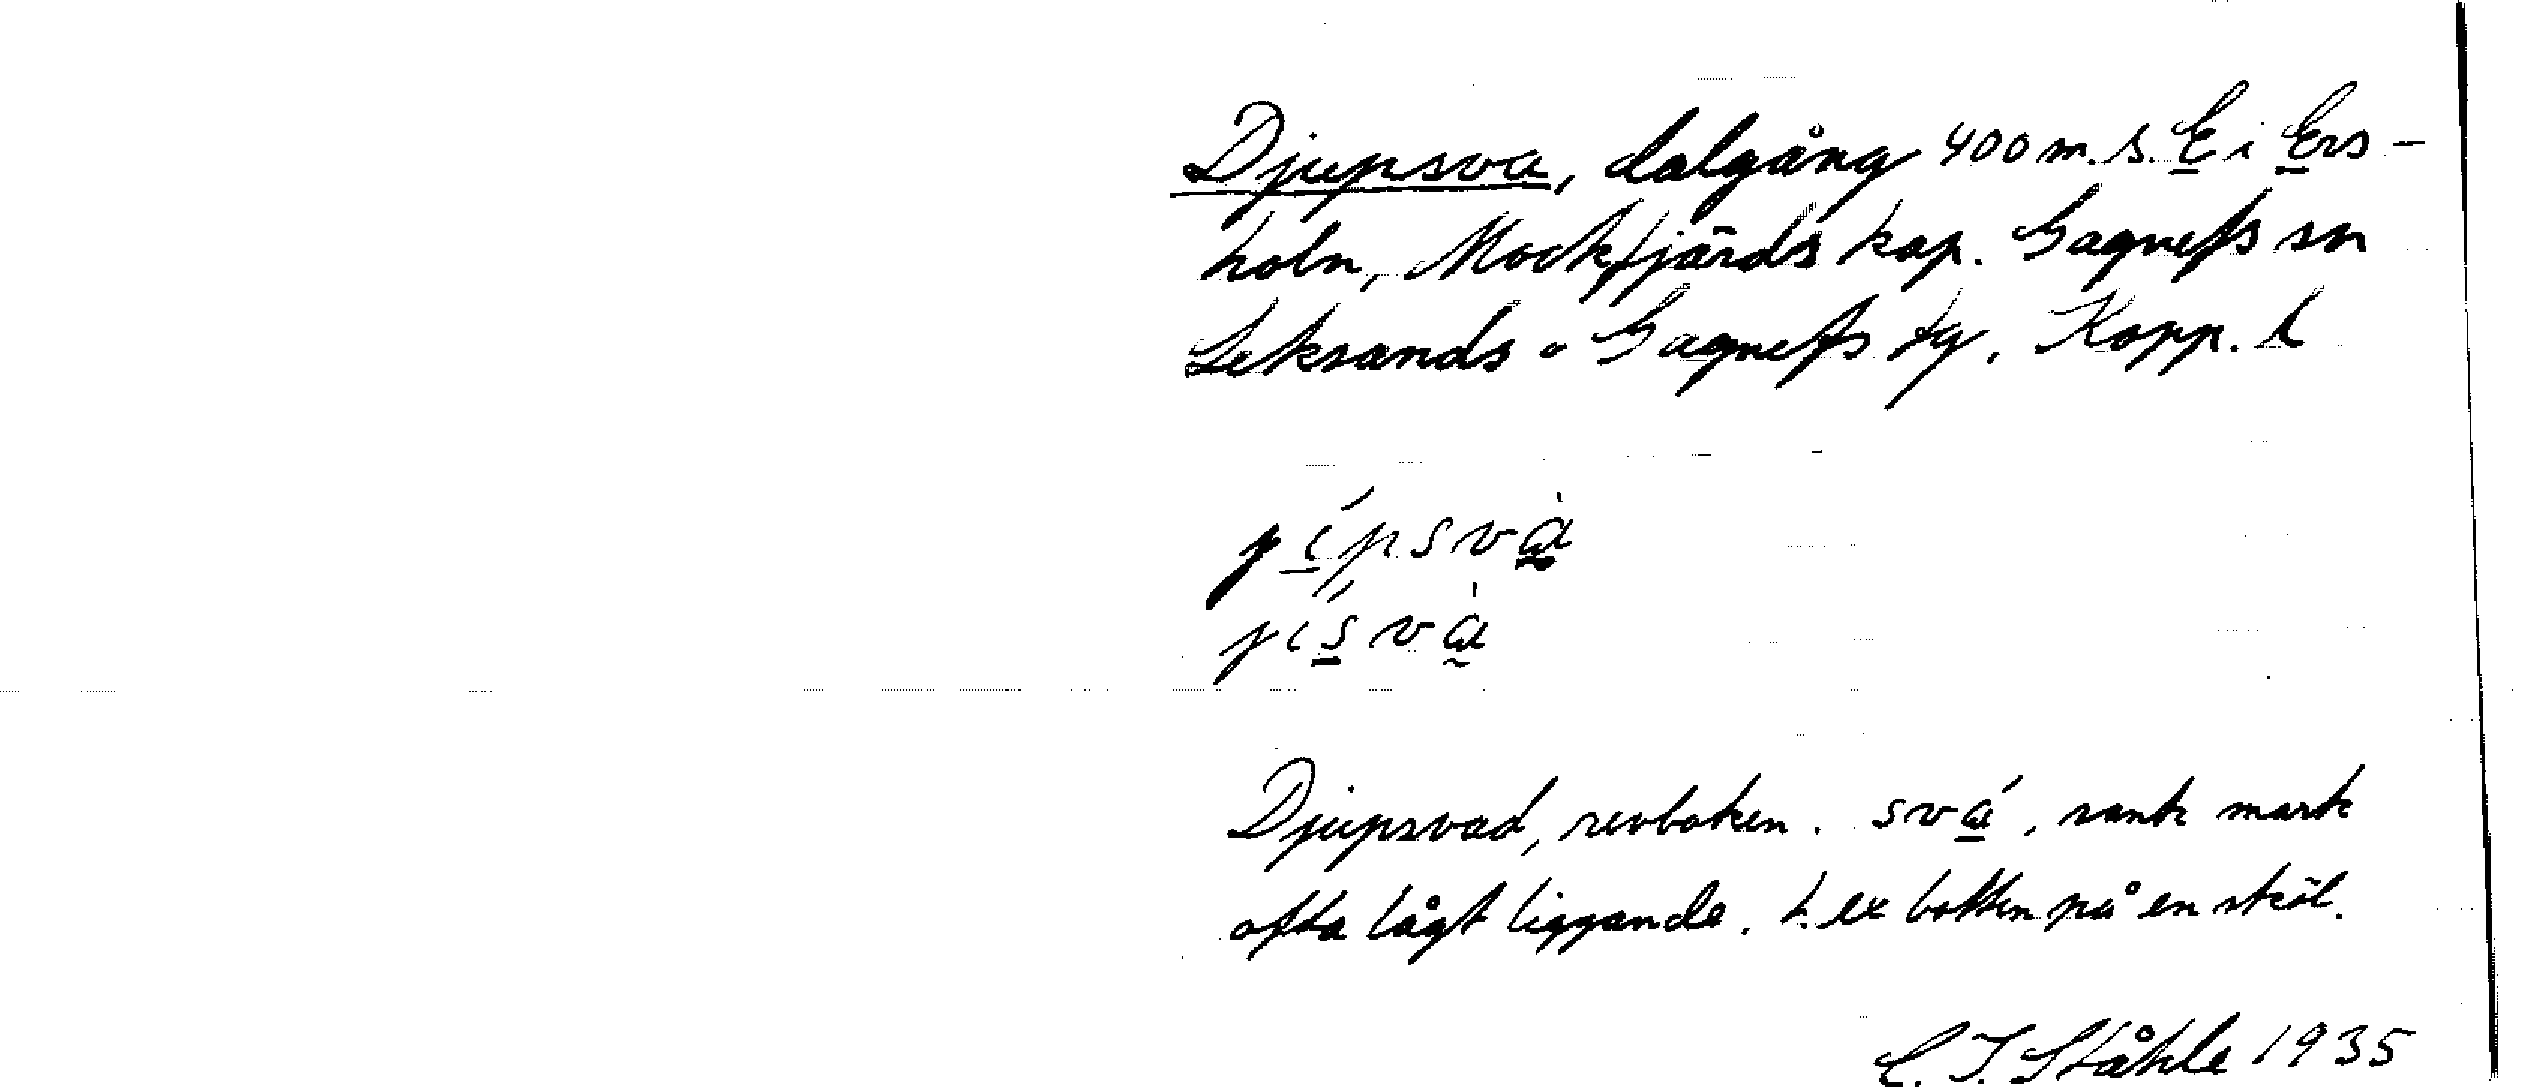 Djupsva, dalgång 400 m. s. E i Ers-
holn, Mockfjärds kap. Gagnefs sn
Leksands o Gagnefs tg, Kopp. l
jípsvà
jísvà
Djupsvad, revboken. svá, sank mark
ofta lågt liggande. t. ex botten på en sköl.
C. I. Ståhle 1935